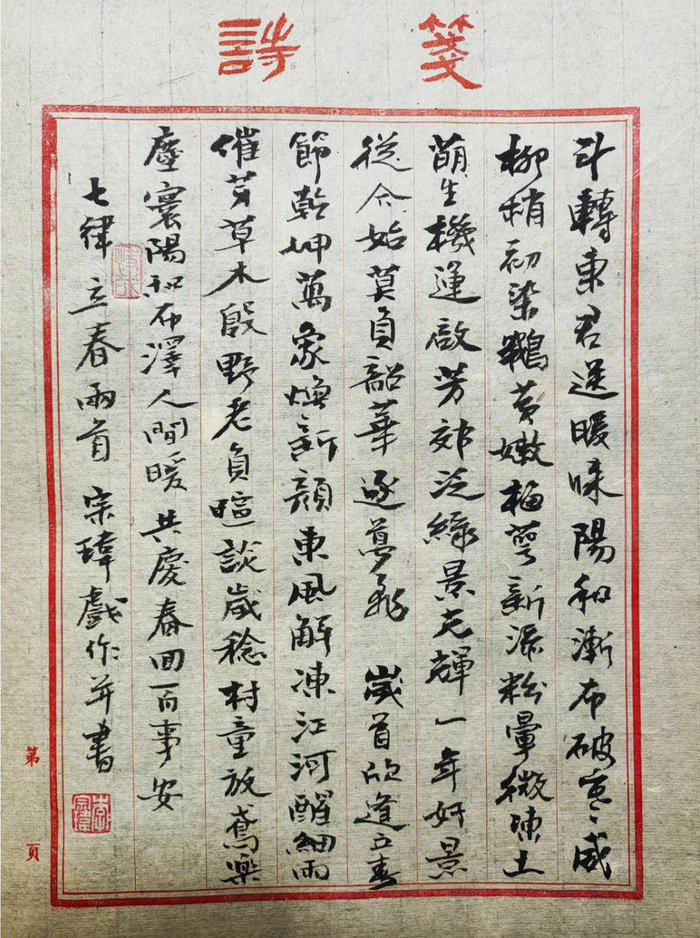 詩箋
斗轉東君送暖陽和漸布破寒威
柳梢初染鵝黃嫩梅萼新添粉暈微凍土
萌生機運啟芳郊泛綠景光輝一年好景
從今始莫負韶華逐夢飛 歲首欣逢立春
節乾坤萬象煥新顏東風解凍江河醒細雨
催芽草木殷野老負暄談歲稔村童放鳶樂
塵寰陽和布澤人間暖共慶春回百事安
七律 立春兩首 宗瑋戲作并書
第 頁